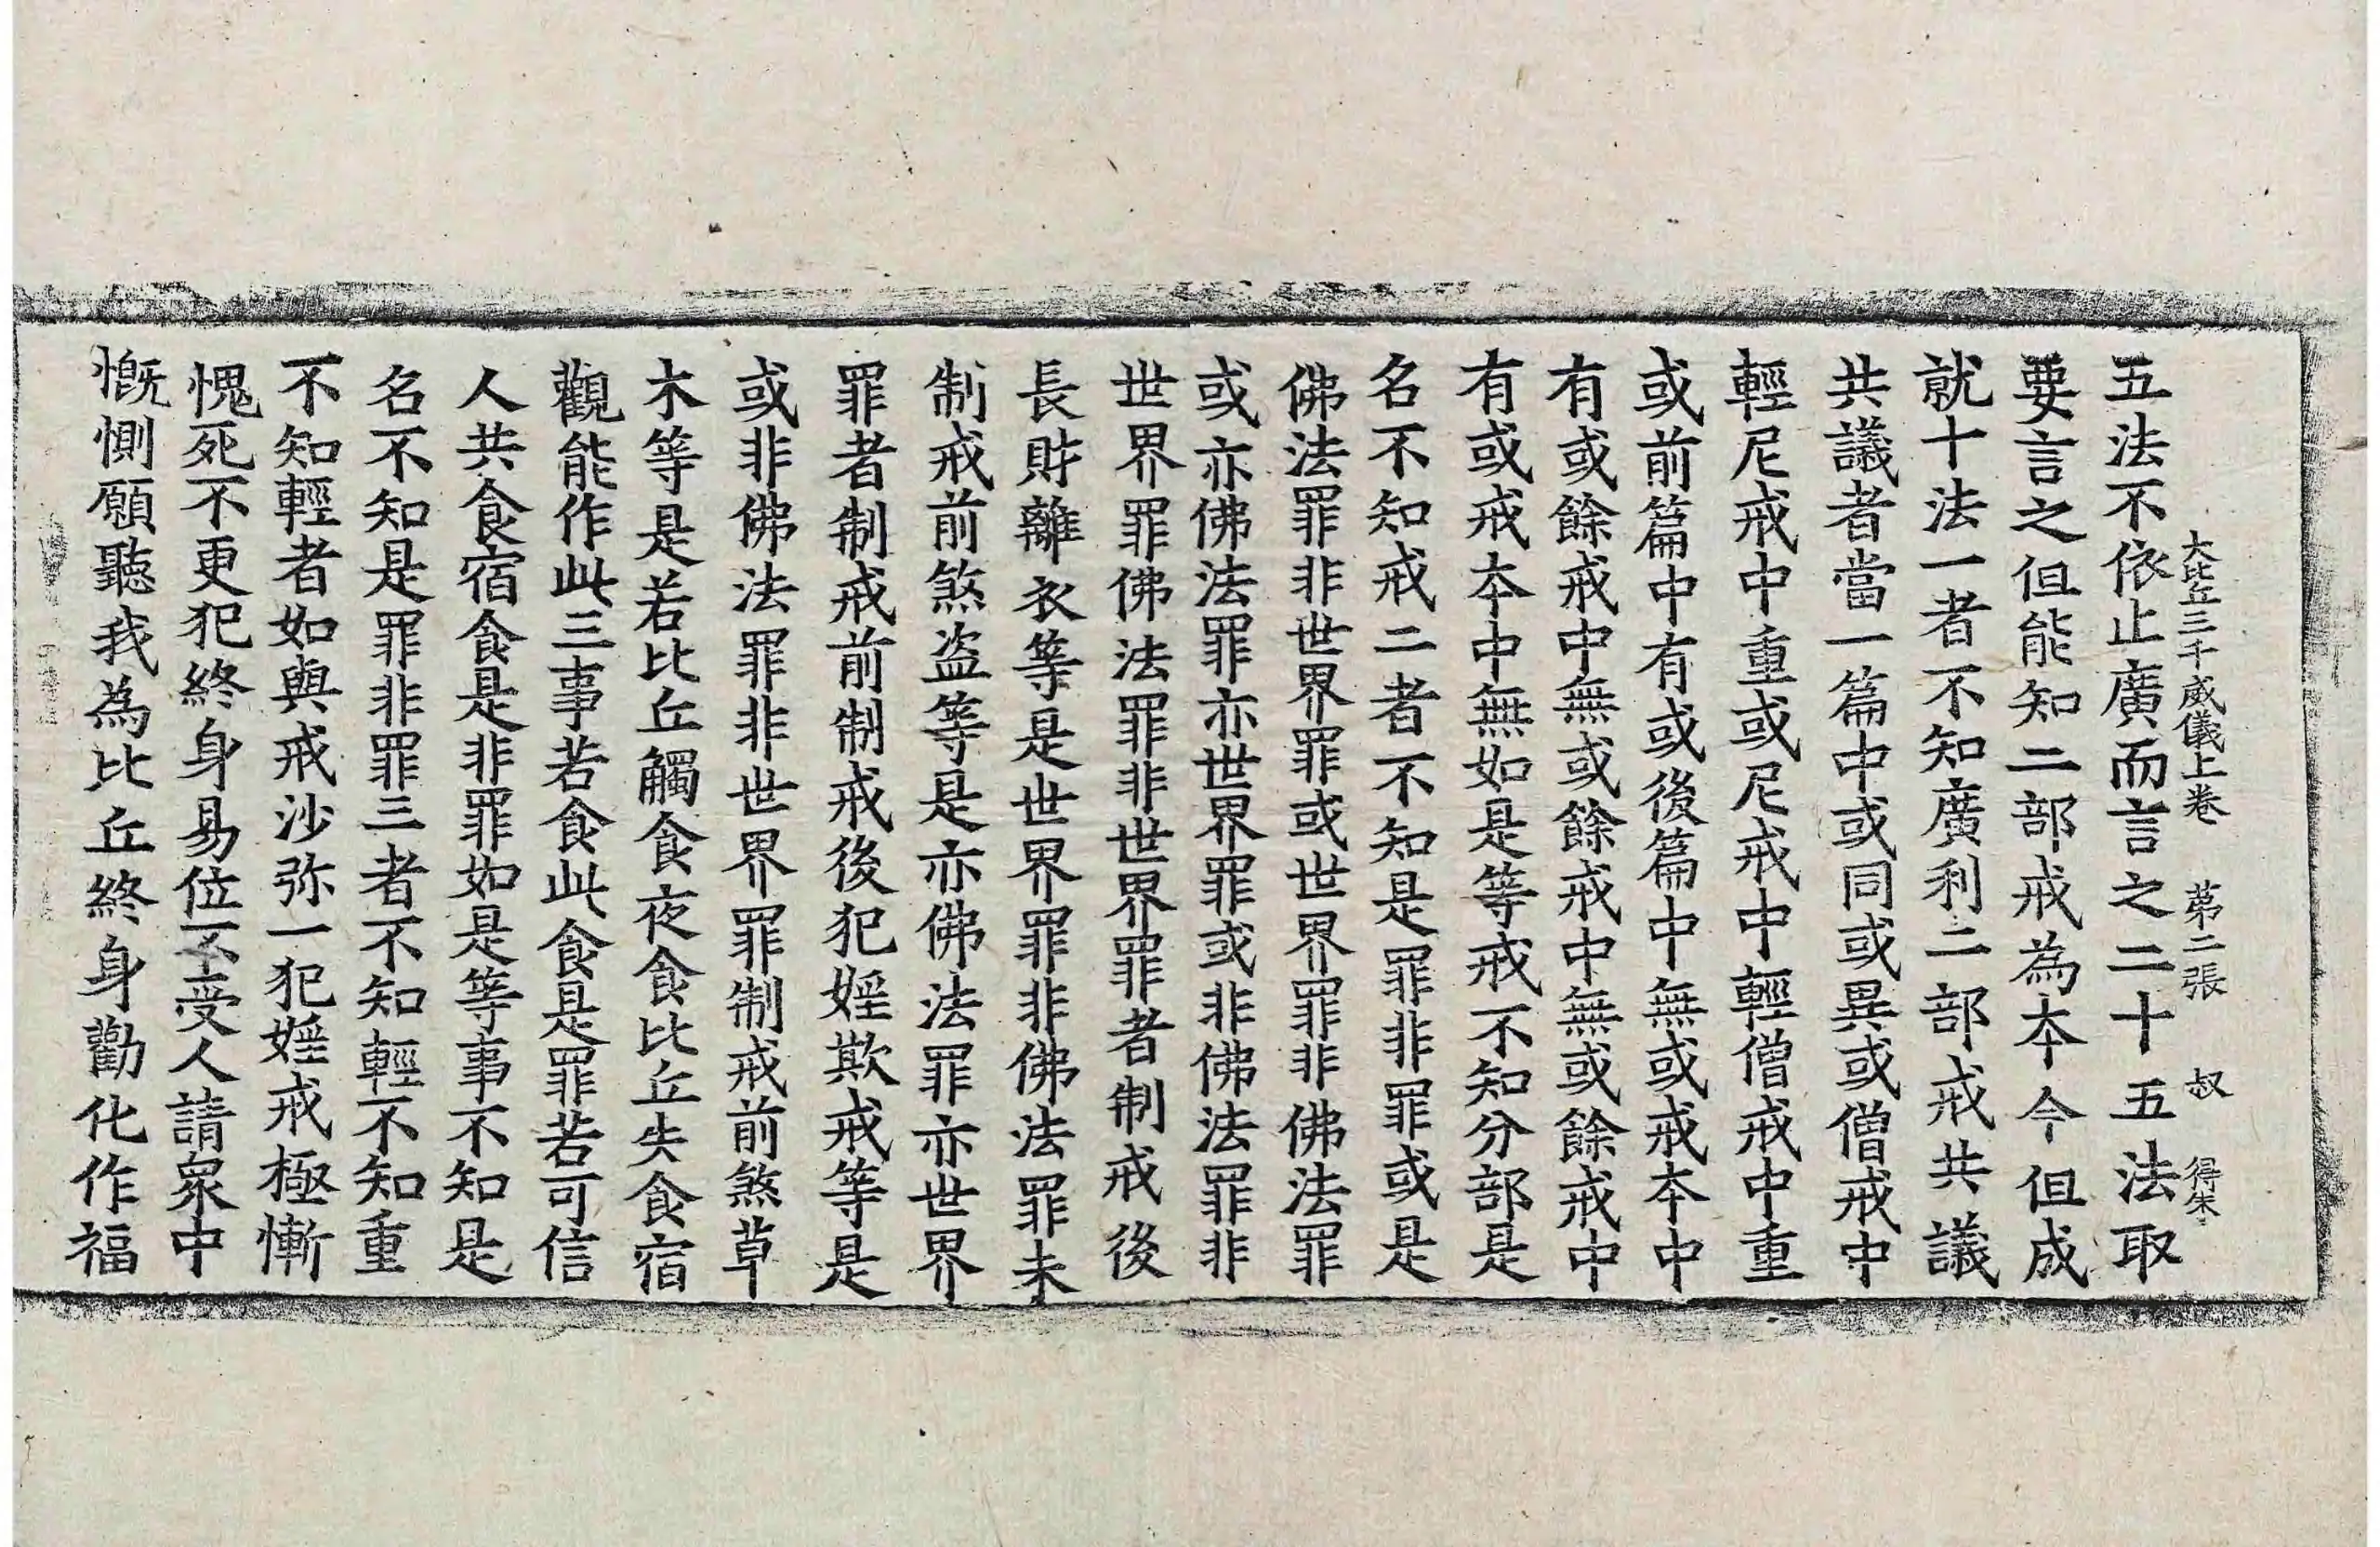 大比丘三千威儀上卷 第二張 叔 得朱
五法不依止廣而言之二十五法取
要言之但能知二部戒為本今但成
就十法一者不知廣利二部戒共議
共議者當一篇中或同或異或僧戒中
輕尼戒中重或尼戒中輕僧戒中重
或前篇中有或後篇中無或戒本中
有或餘戒中無或餘戒中無或餘戒中
有或戒本中無如是等戒不知分部是
名不知戒二者不知是罪非罪或是
佛法罪非世界罪或世界罪非佛法罪
或亦佛法罪亦世界罪或非佛法罪非
世界罪佛法罪非世界罪者制戒後
長財離衣等是世界罪非佛法罪未
制戒前煞盗等是亦佛法罪亦世界
罪者制戒前制戒後犯婬欺戒等是
或非佛法罪非世界罪制戒前煞草
木等是若比丘觸食夜食比丘失食宿
觀能作此三事若食此食是罪若可信
人共食宿食是非罪如是等事不知是
名不知是罪非罪三者不知輕不知重
不知輕者如與戒沙弥一犯婬戒極慚
愧死不更犯終身易位不受人請衆中
慨惻願聽我為比丘終身勸化作福